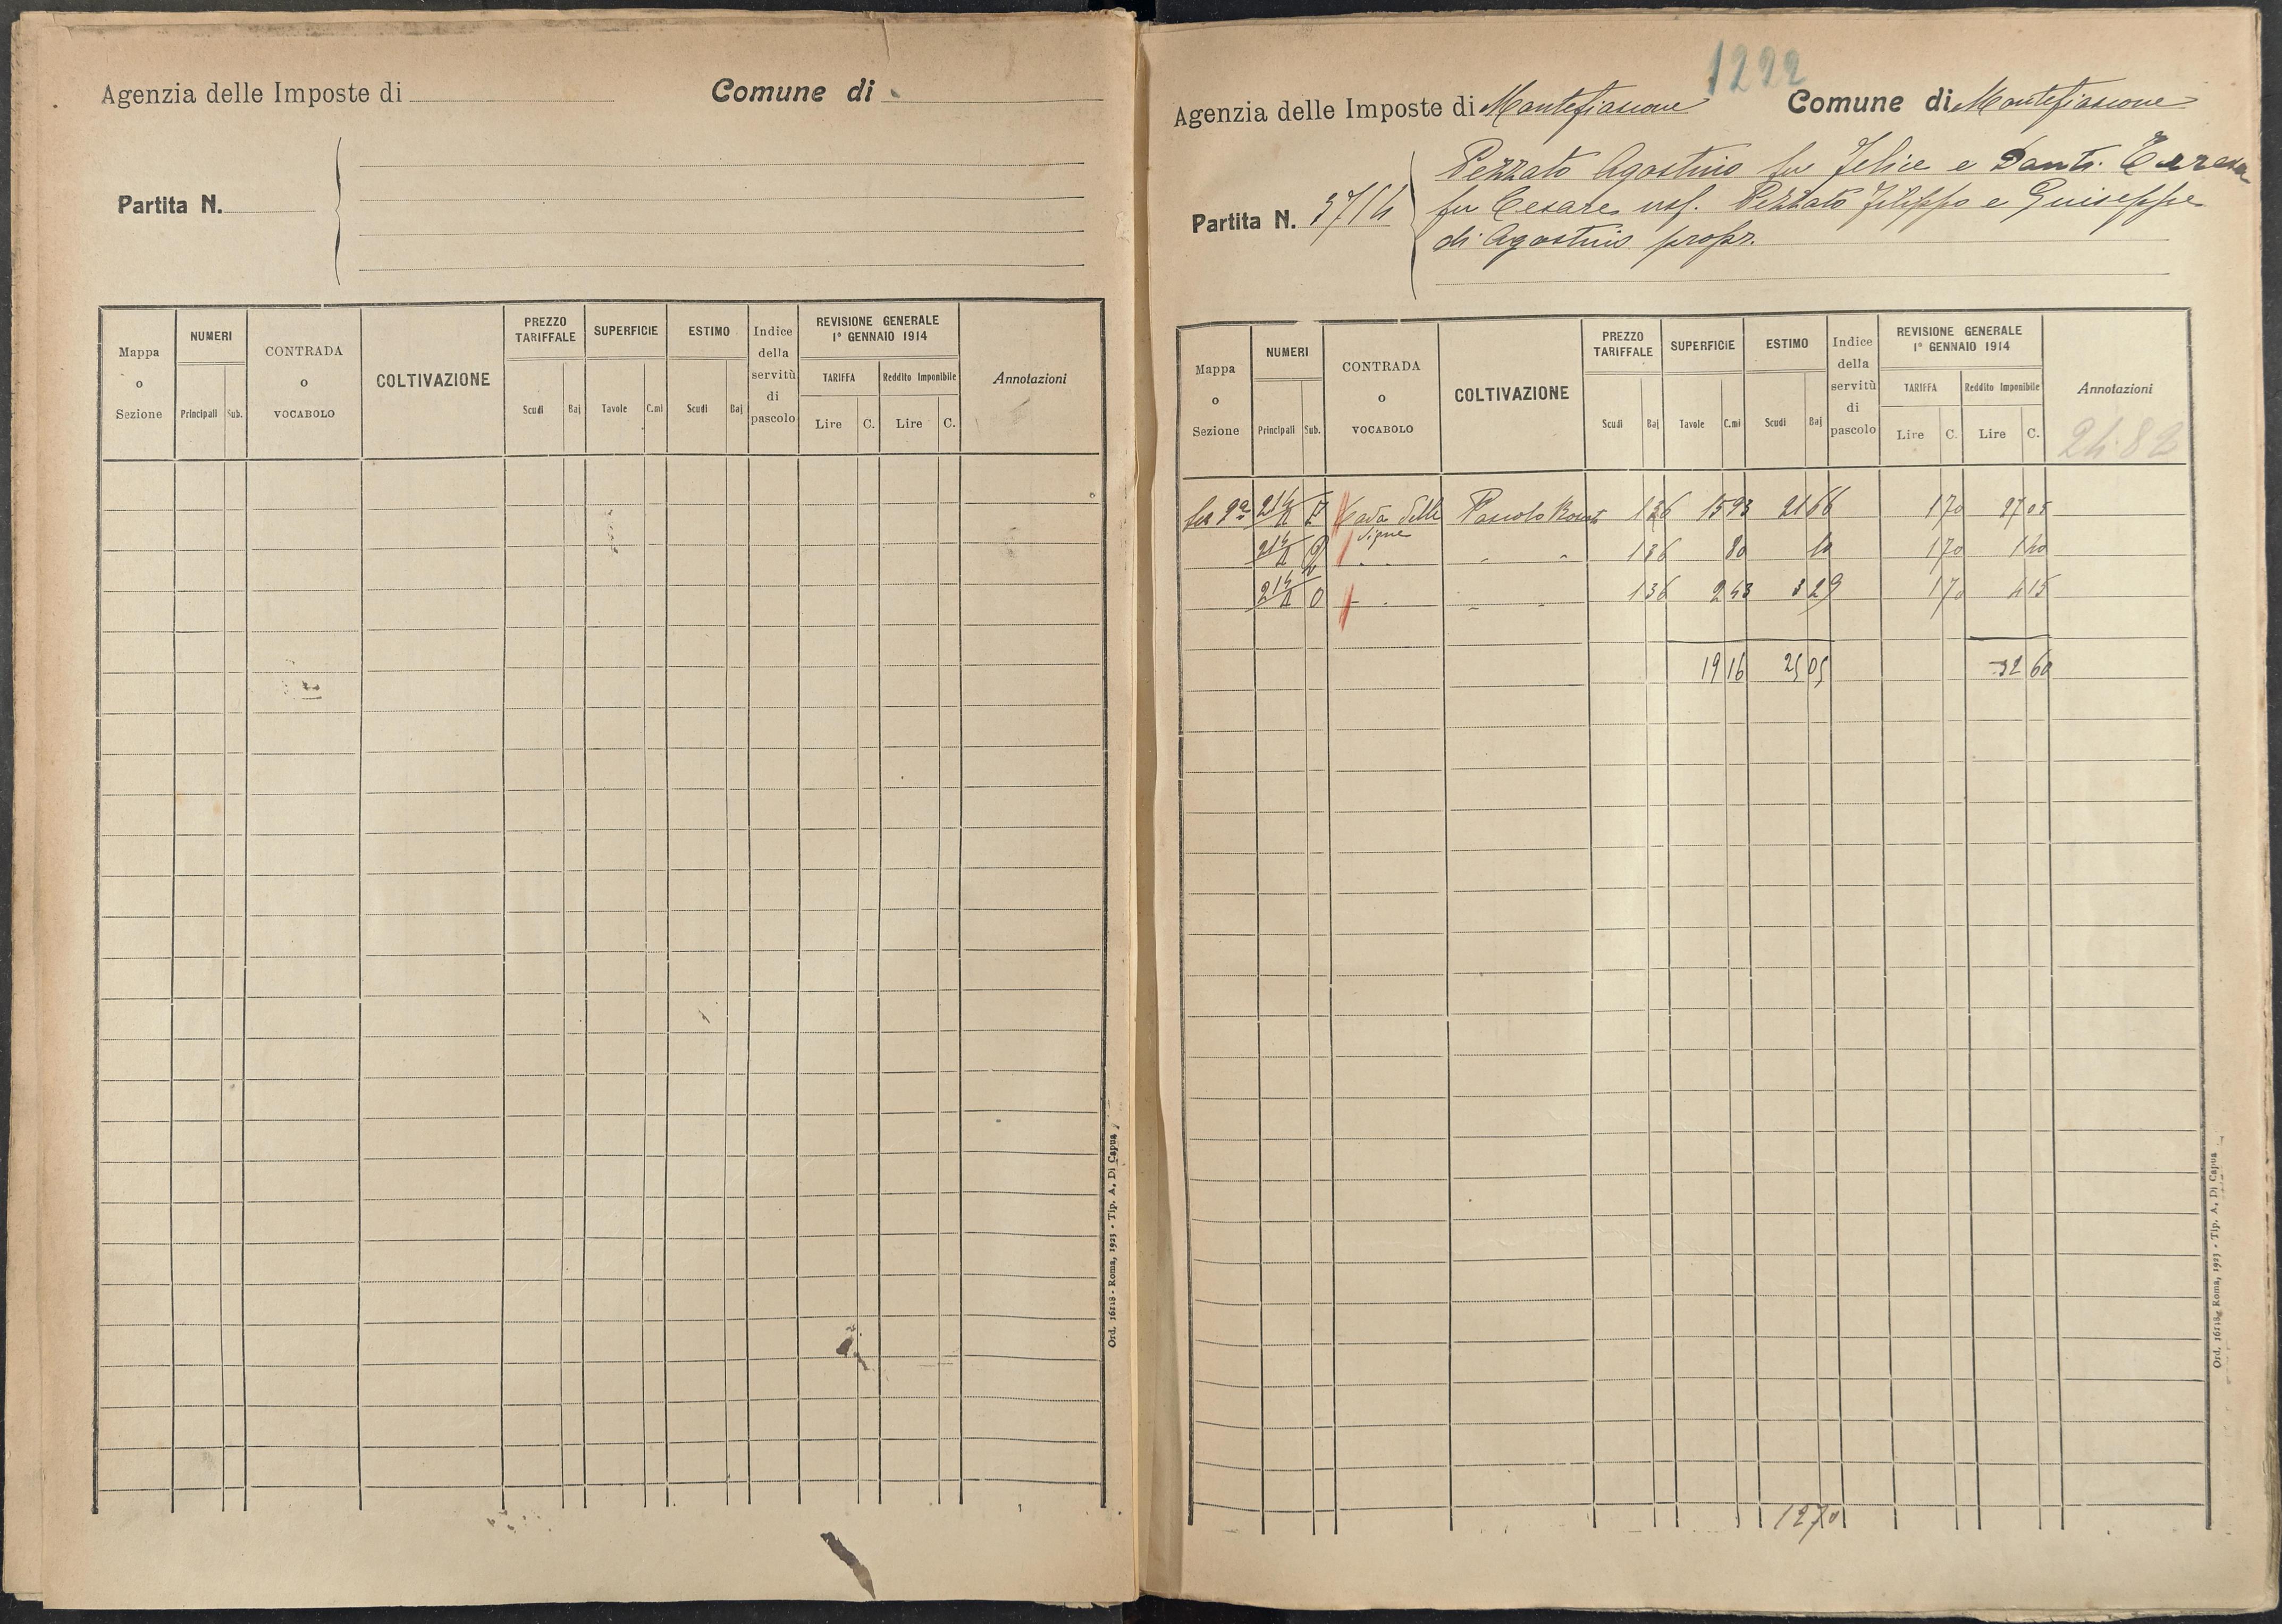 Agenzia delle Imposte di
Comune di
Partita N.
Mappa o Sezione
NUMERI
Principali Sub.
CONTRADA o VOCABOLO
COLTIVAZIONE
PREZZO TARIFFALE
Scudi Baj
SUPERFICIE
Tavole C.mi
ESTIMO
Scudi Baj
Indice della servitù di pascolo
REVISIONE GENERALE
1° GENNAIO 1914
TARIFFA
Lire C.
Reddito Imponibile
Lire C.
Annotazioni
Ord. 16118 - Roma, 1923 - Tip. A. Di Capua
1222
Agenzia delle Imposte di Montefiascone
Comune di Montefiascone
Partita N.
Pezzato Agostino fu Felice e Santi Teresa
fu Cesare usf. Pezzato Filippo e Guiseppe
di Agostino propr.
Mappa o Sezione
NUMERI
Principali Sub.
CONTRADA o VOCABOLO
COLTIVAZIONE
PREZZO TARIFFALE
Scudi Baj
SUPERFICIE
Tavole C.mi
ESTIMO
Scudi Baj
Indice della servitù di pascolo
REVISIONE GENERALE
1° GENNAIO 1914
TARIFFA
Lire C.
Reddito Imponibile
Lire C.
Annotazioni
delle Vigne Pascolo 1 36 15 93 21 66 1 70 27 05
1 36 80 1 70 1 40
1 36 2 43 3 29 1 70 4 15
19 16 25 05 32 60
1270
Ord. 16118 - Roma, 1923 - Tip. A. Di Capua